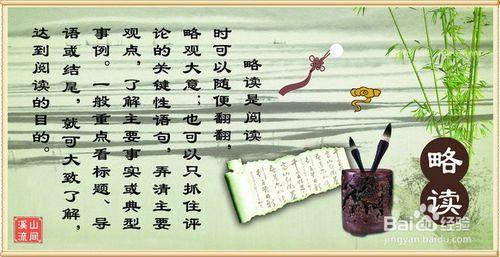 略读
略读是阅读
时可以随便翻翻，
略观大意；也可以只抓住评
论的关键性语句，弄清主要
观点，了解主要事实或典型
事例。一般重点看标题、导
语或结尾，就可大致了解，
达到阅读的目的。
山间
溪流
Baidu经验
jingyan.baidu.com